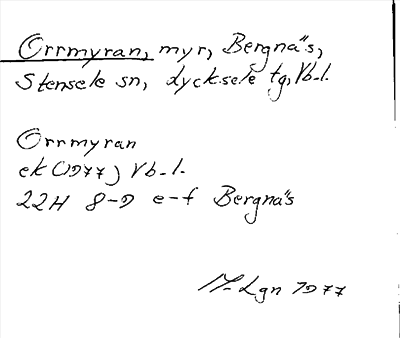 Orrmyran, myr, Bergnäs,
Stensele sn, Lycksele tg, Vb.l.
Orrmyran
ek (1977) Vb.l.
22H 8-9 e-f Bergnäs
M-Lgn 1977